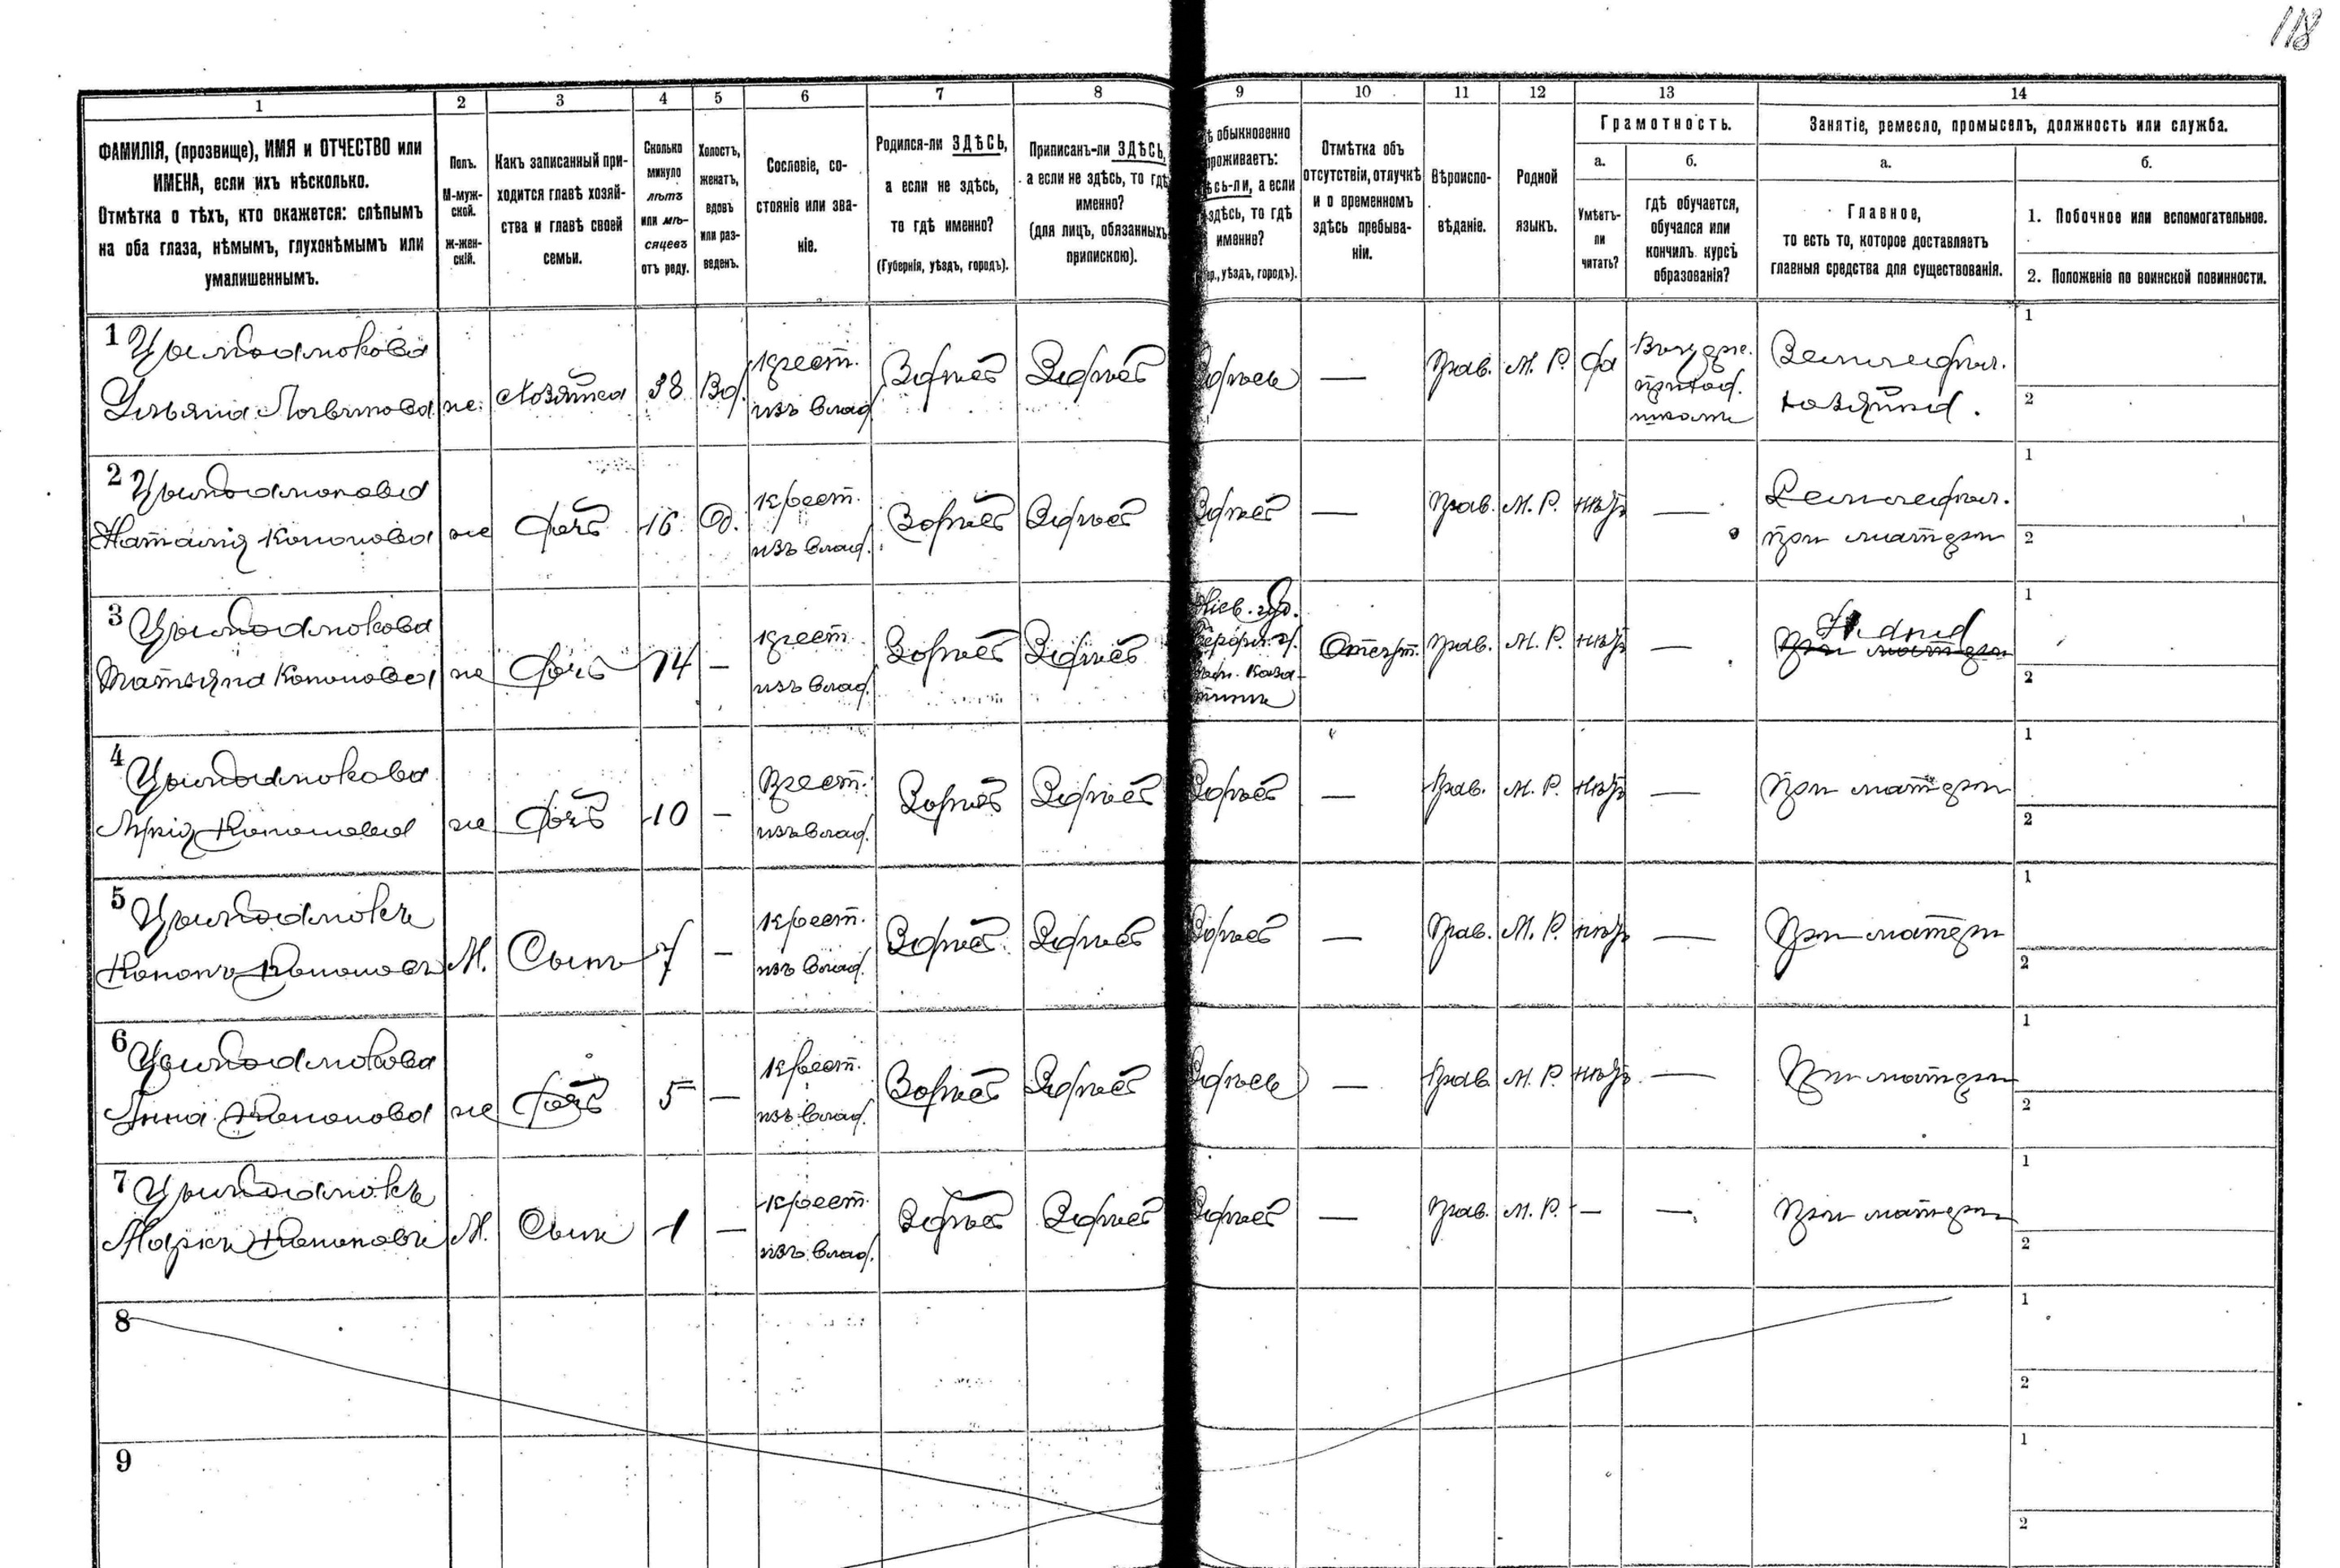 118
1 2 3 4 5 6 7 8 9 10 11 12 13 14
ФАМИЛІЯ, (прозвище), ИМЯ и ОТЧЕСТВО или
ИМЕНА, если ихъ нѣсколько.
Отмѣтка о тѣхъ, кто окажется: слѣпымъ
на оба глаза, нѣмымъ, глухонѣмымъ или
умалишеннымъ.
Полъ.
М-муж-
ской.
ж-жен-
скій.
Какъ записанный при-
ходится главѣ хозяй-
ства и главѣ своей
семьи.
Сколько
минуло
лѣтъ
или мѣ-
сяцевъ
отъ роду.
Холостъ,
женатъ,
вдовъ
или раз-
веденъ.
Сословіе, со-
стояніе или зва-
ніе.
Родился-ли ЗДѢСЬ,
а если не здѣсь,
то гдѣ именно?
(Губернія, уѣздъ, городъ).
Приписанъ-ли ЗДѢСЬ,
а если не здѣсь, то гдѣ
именно?
(для лицъ, обязанныхъ
припискою).
ѣ обыкновенно
роживаетъ:
ѣсь-ли, а если
здѣсь, то гдѣ
именно?
р., уѣздъ, городъ).
Отмѣтка объ
отсутствіи, отлучкѣ
и о временномъ
здѣсь пребыва-
ніи.
Вѣроиспо-
вѣданіе.
Родной
языкъ.
Грамотность.
а.
Умѣетъ-
ли
читать?
б.
гдѣ обучается,
обучался или
кончилъ курсъ
образованія?
Занятіе, ремесло, промыселъ, должность или служба.
а.
Главное,
то есть то, которое доставляетъ
главныя средства для существованія.
б.
1. Побочное или вспомогательное.
2. Положеніе по воинской повинности.
1
Ульяна
же.
Хозяйка
38
Вд.
крест.
изъ влад.
Здѣсь
Здѣсь
Здѣсь
—
Прав.
М. Р.
да
школѣ
Земледѣл.
хозяйка.
1
2
2
Наталія Кононова
же
дочь
16
Д.
крест.
изъ влад.
Здѣсь
Здѣсь
Здѣсь
—
Прав.
М. Р.
нѣтъ
—
Земледѣл.
при матери
1
2
3
Татьяна Кононова
же
дочь
14
—
крест.
изъ влад.
Здѣсь
Здѣсь
Кіев. губ.
Отсут.
Прав.
М. Р.
нѣтъ
—
при матери
1
2
4
Кононова
же
дочь
10
—
крест.
изъ влад.
Здѣсь
Здѣсь
Здѣсь
—
Прав.
М. Р.
нѣтъ
—
при матери
1
2
5
Кононъ Кононовъ
М.
Сынъ
7
—
крест.
изъ влад.
Здѣсь
Здѣсь
Здѣсь
—
Прав.
М. Р.
нѣтъ
—
при матери
1
2
6
Анна Кононова
же
дочь
5
—
крест.
изъ влад.
Здѣсь
Здѣсь
Здѣсь
—
Прав.
М. Р.
нѣтъ
—
при матери
1
2
7
Марко Кононовъ
М.
Сынъ
1
—
крест.
изъ влад.
Здѣсь
Здѣсь
Здѣсь
—
Прав.
М. Р.
—
—
при матери
1
2
8
1
2
9
1
2